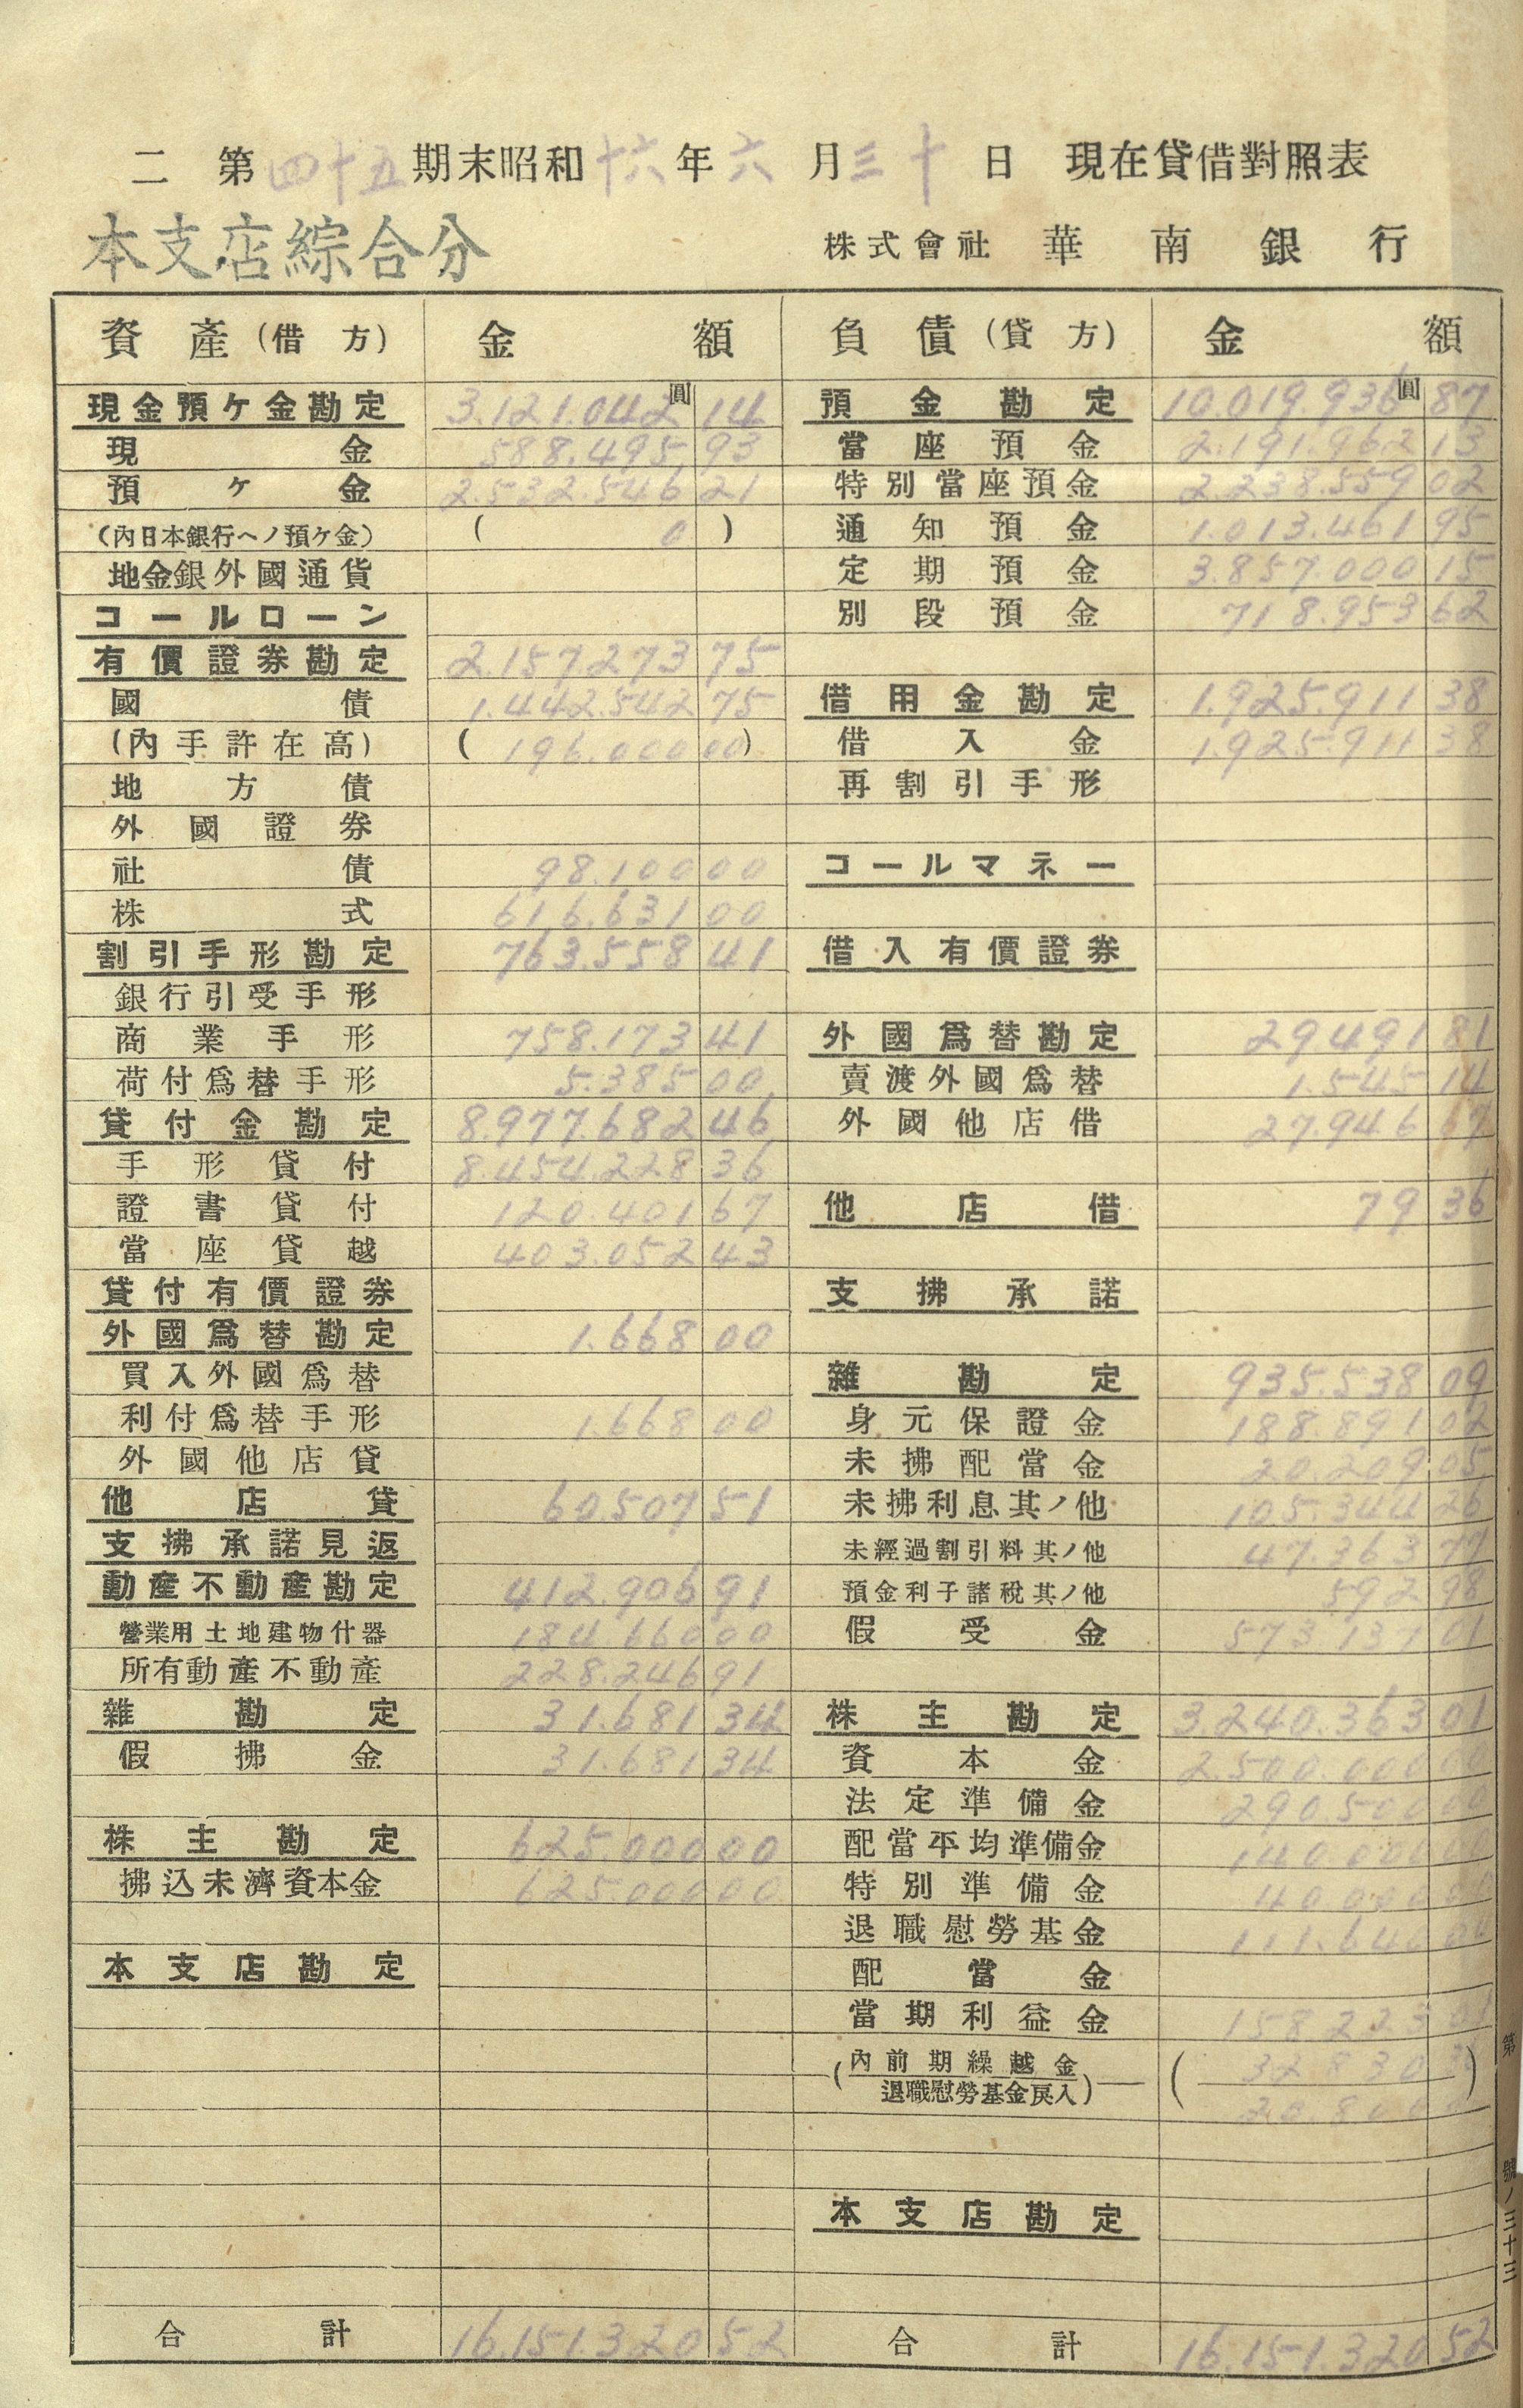 二 第四十五期末昭和十六年六月三十日 現在貸借對照表
本支店綜合分
株式會社 華南銀行
資產(借方) 金額
現金預ケ金勘定 3.121.042圓 14
現金 588.495 93
預ケ金 2.532.546 21
(內日本銀行ヘノ預ケ金) ( 0 )
地金銀外國通貨
コールローン
有價證券勘定 2.157.273 75
國債 1.442.542 75
(內手許在高) ( 196.000 00 )
地方債
外國證券
社債 98.100 00
株式 616.631 00
割引手形勘定 763.558 41
銀行引受手形
商業手形 758.173 41
荷付爲替手形 5.385 00
貸付金勘定 8.977.682 46
手形貸付 8.454.228 36
證書貸付 120.401 67
當座貸越 403.052 43
貸付有價證券
外國爲替勘定 1.668 00
買入外國爲替
利付爲替手形 1.668 00
外國他店貸
他店貸 60.507 51
支拂承諾見返
動產不動產勘定 412.906 91
營業用土地建物什器 184.660 00
所有動產不動產 228.246 91
雜勘定 31.681 34
假拂金 31.681 34
株主勘定 625.000 00
拂込未濟資本金 625.000 00
本支店勘定
合計 16.151.320 52
負債(貸方) 金額
預金勘定 10.019.936圓 87
當座預金 2.191.962 13
特別當座預金 2.238.559 02
通知預金 1.013.461 95
定期預金 3.857.000 15
別段預金 718.953 62
借用金勘定 1.925.911 38
借入金 1.925.911 38
再割引手形
コールマネー
借入有價證券
外國爲替勘定 29.491 81
賣渡外國爲替 1.545 14
外國他店借 27.946 67
他店借 79 36
支拂承諾
雜勘定 935.538 09
身元保證金 188.891 02
未拂配當金 20.209 05
未拂利息其ノ他 105.344 26
未經過割引料其ノ他 47.363 77
預金利子諸稅其ノ他 592 98
假受金 573.137 01
株主勘定 3.240.363 01
資本金 2.500.000 00
法定準備金 290.500 00
配當平均準備金 140.000 00
特別準備金 40.000 00
退職慰勞基金 111.640 00
配當金
當期利益金 158.223 01
(內前期繰越金 (32830
退職慰勞基金戾入) )
本支店勘定
合計 16.151.320 52
第 號ノ三十三